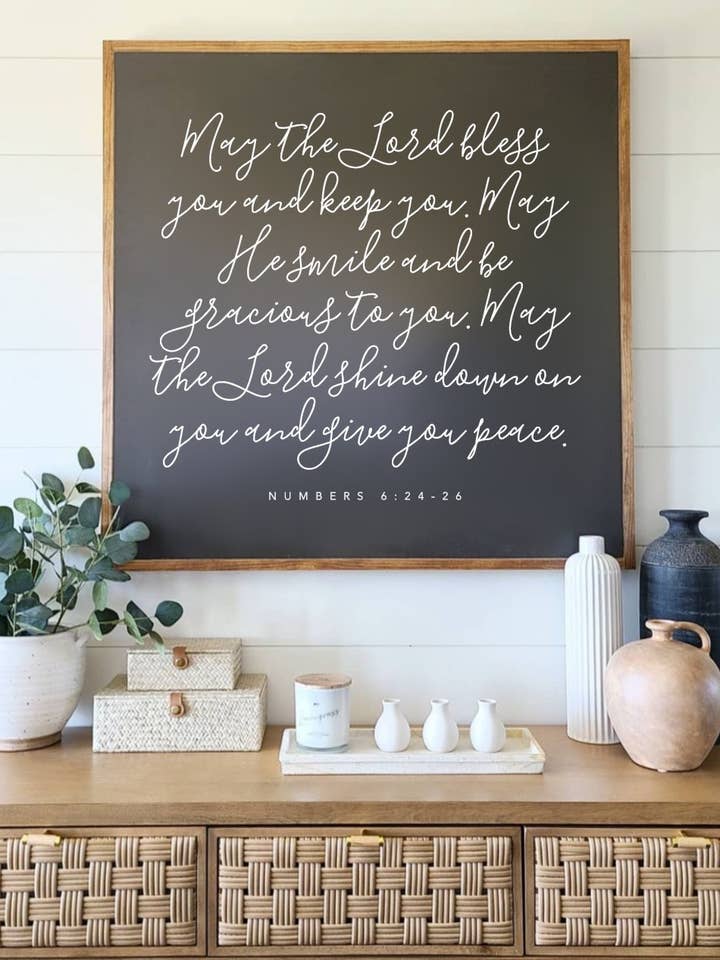 May the Lord bless
you and keep you. May
He smile and be
gracious to you. May
the Lord shine down on
you and give you peace.
NUMBERS 6:24-26